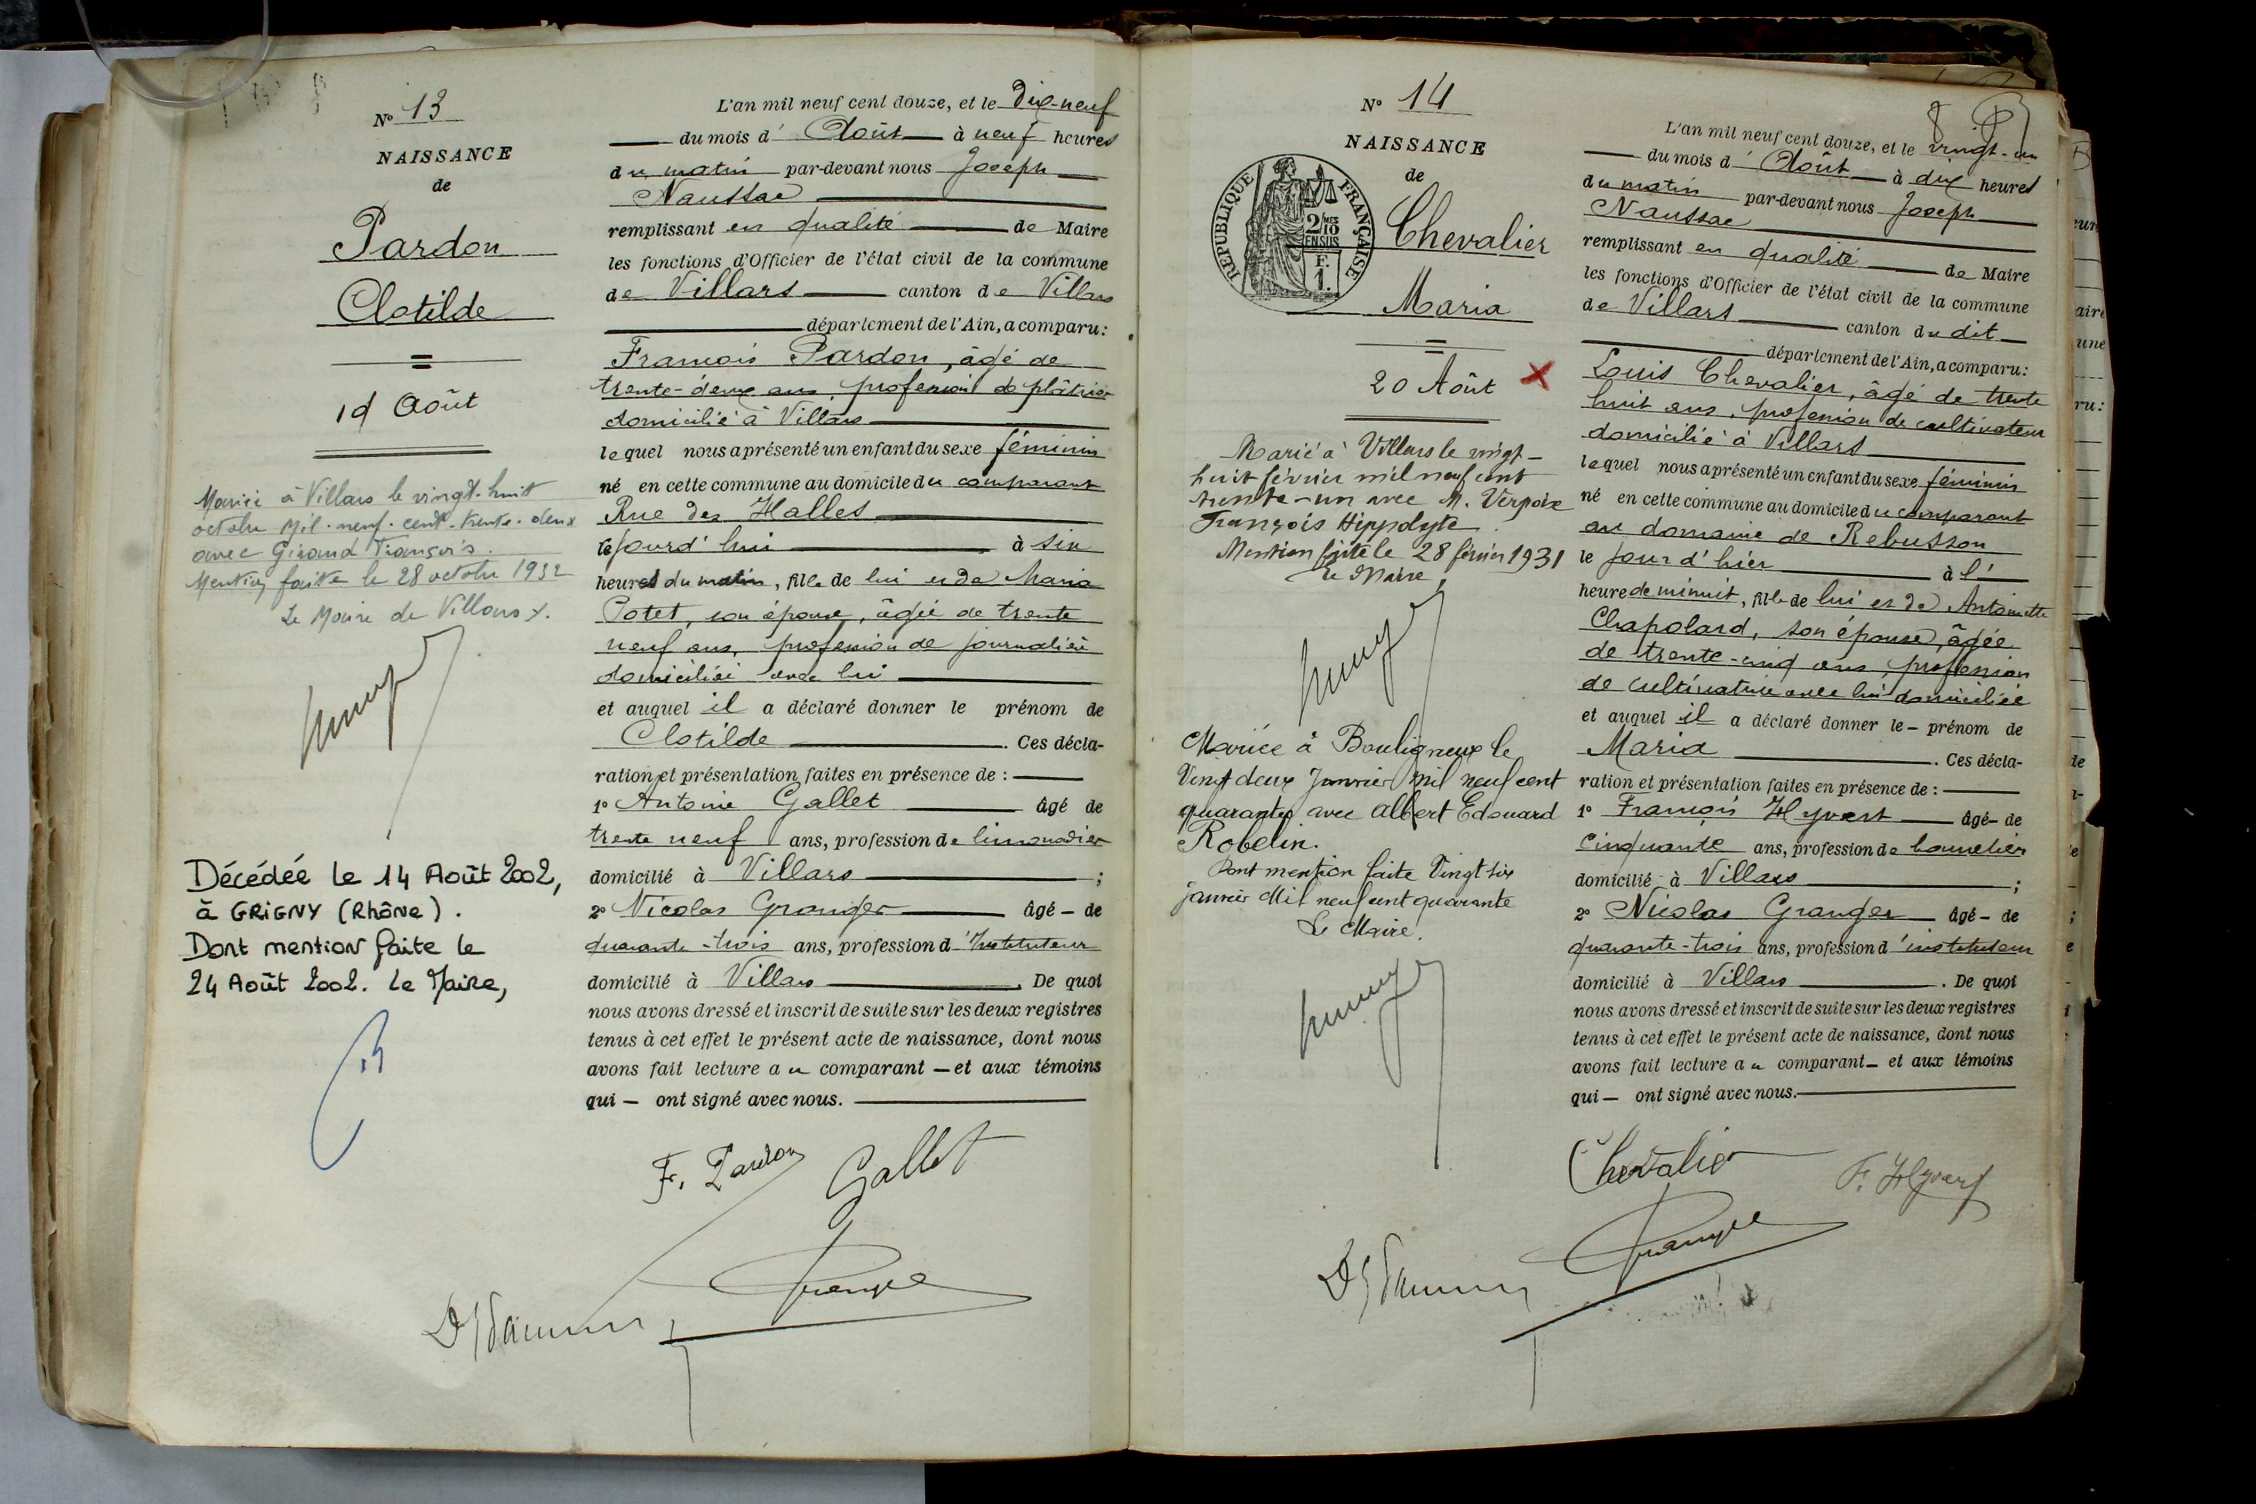 N° 13
NAISSANCE
de
Pardon
Clotilde
19 Août
Mariée à Villars le vingt-huit
octobre mil-neuf-cent-trente-deux
avec Girand François.
Mention faite le 28 octobre 1932
Le Maire de Villars.
Décédée le 14 Août 2002,
à GRIGNY (Rhône).
Dont mention faite le
24 Août 2002. Le Maire,
L'an mil neuf cent douze, et le Dix-neuf
du mois d'Août à neuf heures
du matin par-devant nous Joseph
Naussac
remplissant en qualité de Maire
les fonctions d'Officier de l'état civil de la commune
de Villars canton de Villars
département de l'Ain, a comparu:
François Pardon, âgé de
trente-deux ans, profession de plâtrier
domicilié à Villars
lequel nous a présenté un enfant du sexe féminin
né en cette commune au domicile du comparant
Rue des Halles
le jourd'hui à six
heures du matin, fille de lui et de Maria
Potet, son épouse, âgée de trente
neuf ans, profession de journalière
domiciliée avec lui
et auquel il a déclaré donner le prénom de
Clotilde. Ces décla-
ration et présentation faites en présence de:
1° Antoine Gallet âgé de
trente neuf ans, profession de limonadier
domicilié à Villars;
2° Nicolas Granger âgé de
quarante-trois ans, profession d'Instituteur
domicilié à Villars. De quoi
nous avons dressé et inscrit de suite sur les deux registres
tenus à cet effet le présent acte de naissance, dont nous
avons fait lecture au comparant et aux témoins
qui ont signé avec nous.
F. Pardon Gallet
Granger
N° 14
NAISSANCE
de
RÉPUBLIQUE FRANÇAISE
2/10 MES
EN SUS
F.
1.
Chevalier
Maria
20 Août
Marié à Villars le vingt-
huit février mil neuf cent
trente-un avec M. Verpoix
François Hippolyte.
Mention faite le 28 février 1931
Le Maire
Mariée à Bouligneux le
Vingt deux Janvier mil neuf cent
quarante avec Albert Edouard
Robelin.
Dont mention faite Vingt six
janvier Mil neuf cent quarante
Le Maire.
L'an mil neuf cent douze, et le vingt-un
du mois d'Août à dix heures
du matin par-devant nous Joseph
Naussac
remplissant en qualité de Maire
les fonctions d'Officier de l'état civil de la commune
de Villars canton du dit
département de l'Ain, a comparu:
Louis Chevalier, âgé de trente
huit ans, profession de cultivateur
domicilié à Villars
lequel nous a présenté un enfant du sexe féminin
né en cette commune au domicile du comparant
au domaine de Rebusson
le jour d'hier à l'
heure de minuit, fille de lui et de Antoinette
Chapolard, son épouse, âgée
de trente-cinq ans, profession
de cultivatrice avec lui domiciliée
et auquel il a déclaré donner le prénom de
Maria. Ces décla-
ration et présentation faites en présence de:
1° François Hyvert âgé de
Cinquante ans, profession de
domicilié à Villars;
2° Nicolas Granger âgé de
quarante-trois ans, profession d'instituteur
domicilié à Villars. De quoi
nous avons dressé et inscrit de suite sur les deux registres
tenus à cet effet le présent acte de naissance, dont nous
avons fait lecture au comparant et aux témoins
qui ont signé avec nous.
Chevalier F. Hyvert
Granger